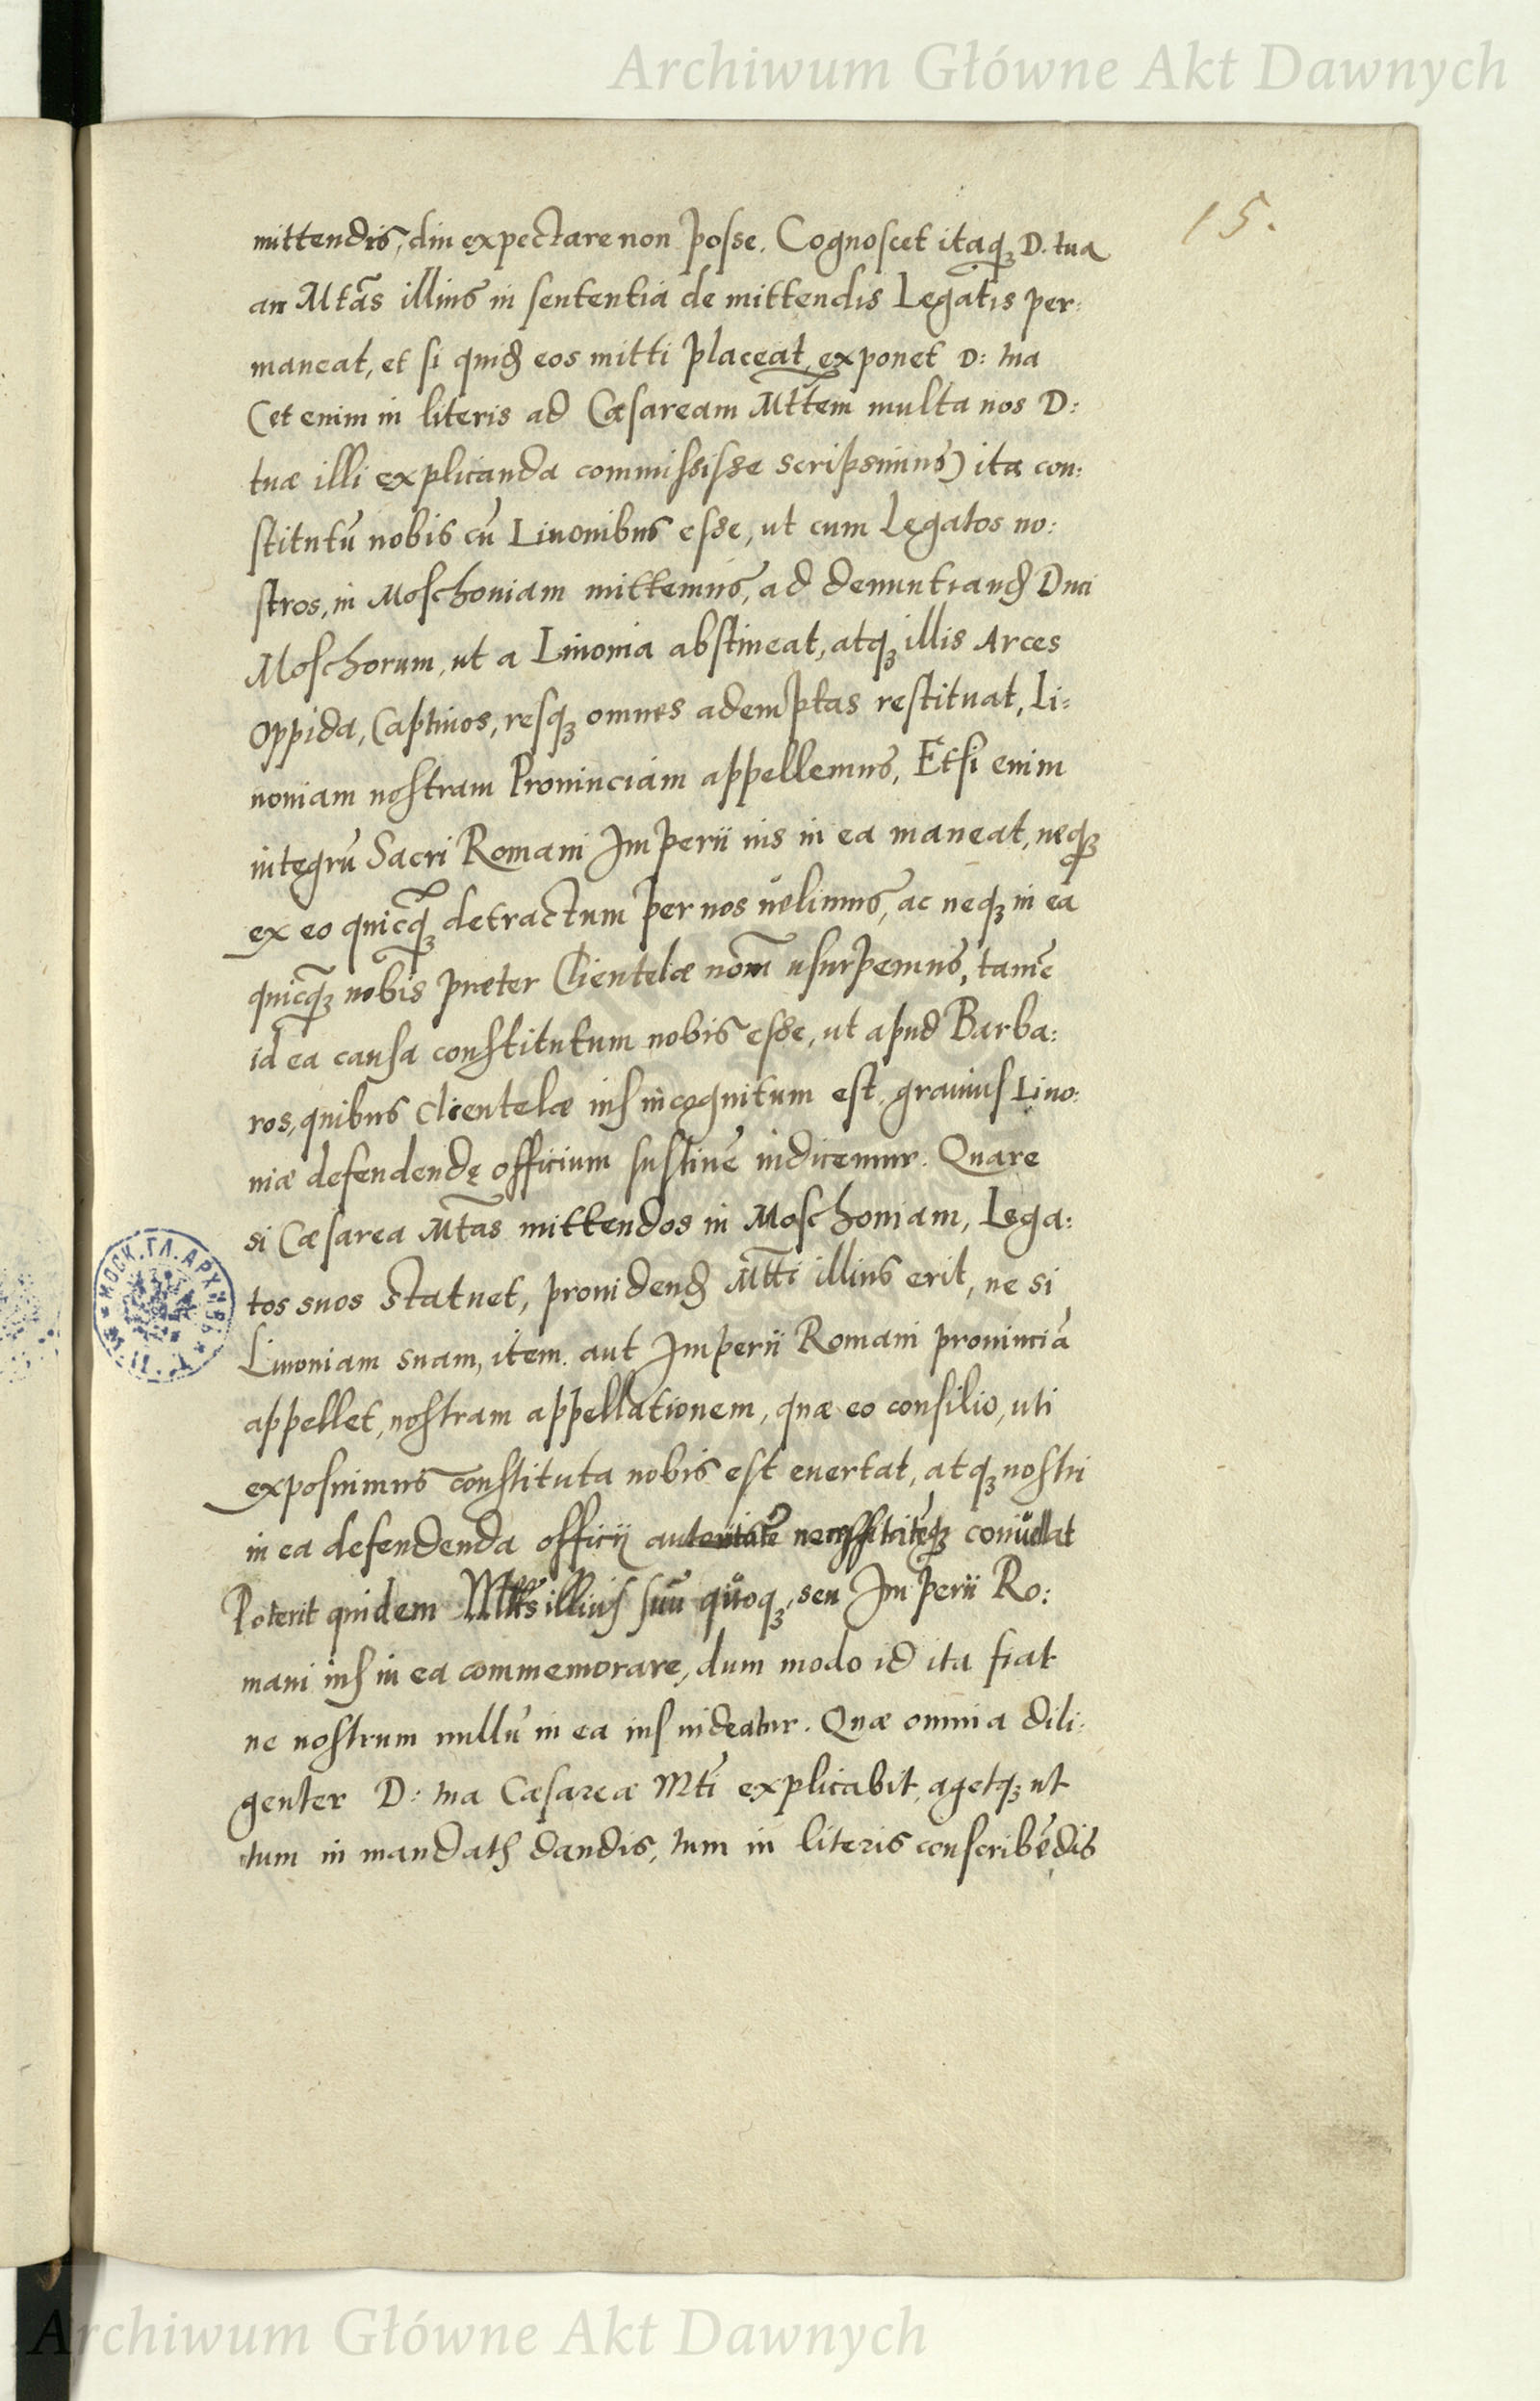 Archiwum Główne Akt Dawnych
15.
mittendis, diu expectare non posse. Cognoscet itaq₃ D. tua
an Mtas illius in sententia de mittendis Legatis per:
maneat, et si quid eos mitti placeat, exponet D: tua
(et enim in literis ad Cæsaream Mttem multa nos D:
tuæ illi explicanda commisisse scripsimus) ita con:
stitutū nobis cū Liuonibus esse, ut cum Legatos no:
stros, in Moschouiam mittemus, ad denuntiand Duci
Moschorum, ut a Liuonia abstineat, atq₃ illis Arces
Oppida, Captiuos, resq₃ omnes ademptas restituat, Li:
uoniam nostram Prouinciam appellemus, Etsi enim
integrū Sacri Romani Imperii ius in ea maneat, neq₃
ex eo quicq₃ detractum per nos uelimus, ac neq₃ in ea
quicq₃ nobis præter Clientelæ nom̄ usurpemus, tamē
id ea causa constitutum nobis esse, ut apud Barba:
ros, quibus Clientelæ ius incognitum est, grauius Liuo:
niæ defendendę officium sustinē iudicemur. Quare
si Cæsarea Mtas mittendos in Moschouiam, Lega:
tos suos statuet, prouidend Mtti illius erit, ne si
Liuoniam suam, item aut Imperii Romani prouinciā
appellet, nostram appellationem, quæ eo consilio, uti
exposuimus constituta nobis est euertat, atq₃ nostri
in ea defendenda officij autoritatē necessitatēq₃ conuellat
Poterit quidem Mttas illius suū quoq₃, seu Imperii Ro:
mani ius in ea commemorare, dum modo id ita fiat
ne nostrum nullū in ea ius uideatur. Quæ omnia dili:
genter D: tua Cæsareæ Mti explicabit, agetq₃ ut
tum in mandatis dandis, tum in literis conscribēdis
МОСК. ГЛ. АРХИВЪ
Archiwum Główne Akt Dawnych